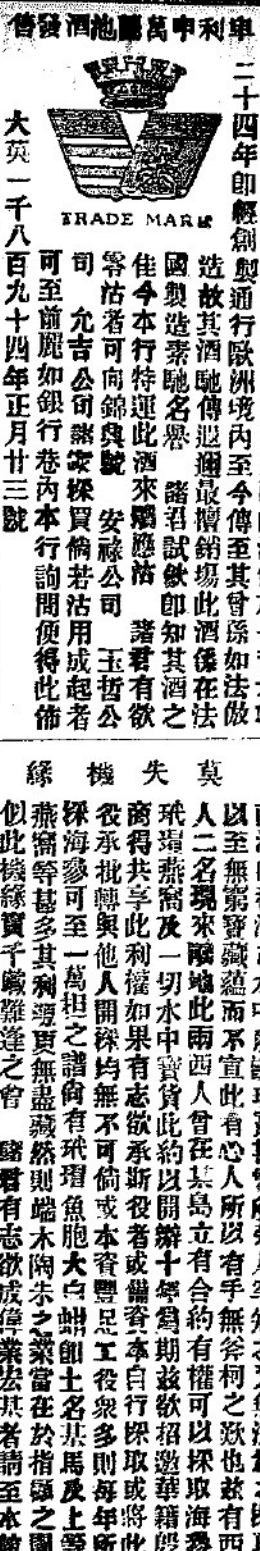 車利申萬酒發售
TRADE MARK
二十四年即經創製通行歐洲境內至今傳至其曾孫如法倣
造故其酒馳傳遐邇最擅銷塲此酒係在法
國製造素馳名譽 諸君試飲即知其酒之
佳今本行特運此酒來應沽 諸君有欲
零沽者可向錦興號 安祿公司 玉哲公
司 允吉公司諸家採買倘若沽用成起者
可至前麗如銀行巷內本行詢問便得此佈
大英一千八百九十四年正月廿三號
莫失機緣
以至無窮寶藏蘊而不宣此有心人所以有手無斧柯之歎也茲有西
人二名現來此兩西人曾在某島立有合約有權可以採取海參
玳瑁燕窩及一切水中寶貨此約以開辦十年為期茲欲招邀華籍殷
商得共享此利權如果有志欲承斯役者或備資本自行採取或將此
役承批轉與他人開採均無不可倘或本資豐足工役衆多則每年所
採海參可至一萬担之譜尚有玳瑁魚胞大白蝴即士名基馬及上等
燕窩等甚多其利溥更無盡藏然則端木陶朱之業當在於指顧之間
似此機緣實千歲難逢之會 諸君有志欲成偉業宏基者請至本館